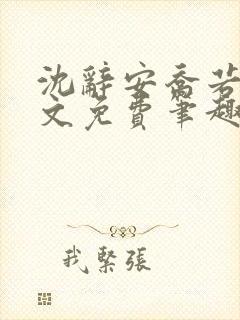 沈辭安喬若
文免費筆趣
我緊張